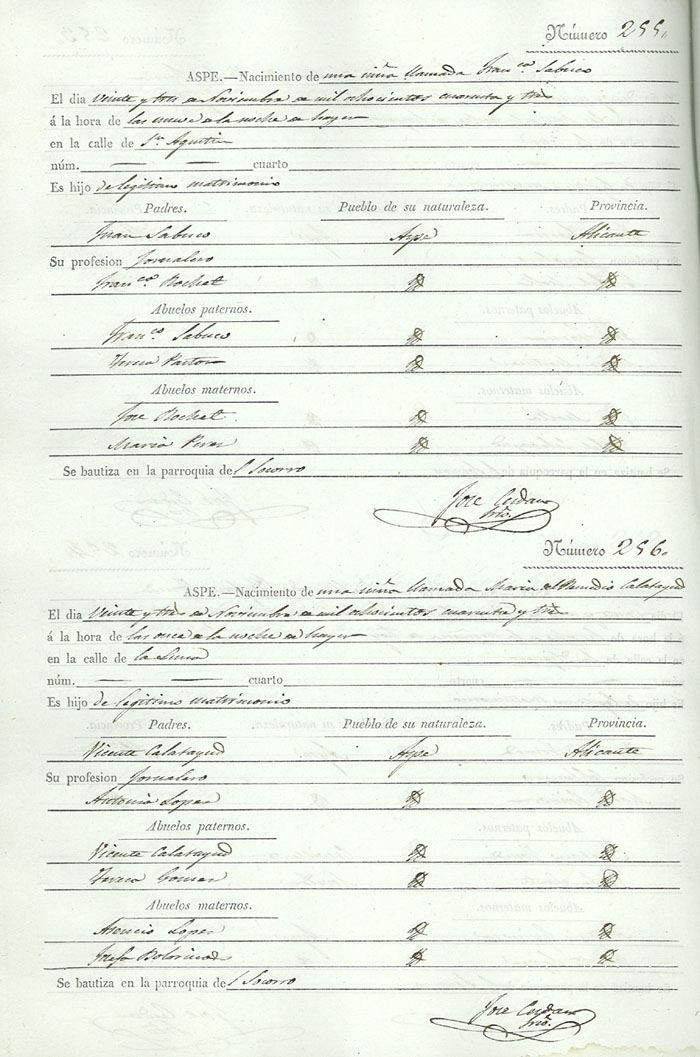 Número 255.
ASPE.—Nacimiento de una niña llamada Fran.ca Sabuco
El dia veinte y tres de Noviembre de mil ochocientos cuarenta y tres
á la hora de las nueve de la noche de hayer
en la calle de Sn. Agustin
núm. — — cuarto
Es hijo de legitimo matrimonio
Padres. Pueblo de su naturaleza. Provincia.
Juan Sabuco Aspe Alicante
Su profesion Jornalero
Fran.ca Bochet
Abuelos paternos.
Fran.co Sabuco
Teresa Pastor
Abuelos maternos.
Jose Bochet
Maria Perez
Se bautiza en la parroquia de l Socorro
Jose Cerdan
Srio.
Número 256.
ASPE.—Nacimiento de una niña llamada Maria del Remedio Calatayud
El dia veinte y tres de Noviembre de mil ochocientos cuarenta y tres
á la hora de las once de la noche de hayer
en la calle de la
núm. — — cuarto
Es hijo de legitimo matrimonio
Padres. Pueblo de su naturaleza. Provincia.
Vicente Calatayud Aspe Alicante
Su profesion Jornalero
Antonia Lopez
Abuelos paternos.
Vicente Calatayud
Teresa Gomez
Abuelos maternos.
Asencio Lopez
Josefa Botorinos
Se bautiza en la parroquia de l Socorro
Jose Cerdan
Srio.